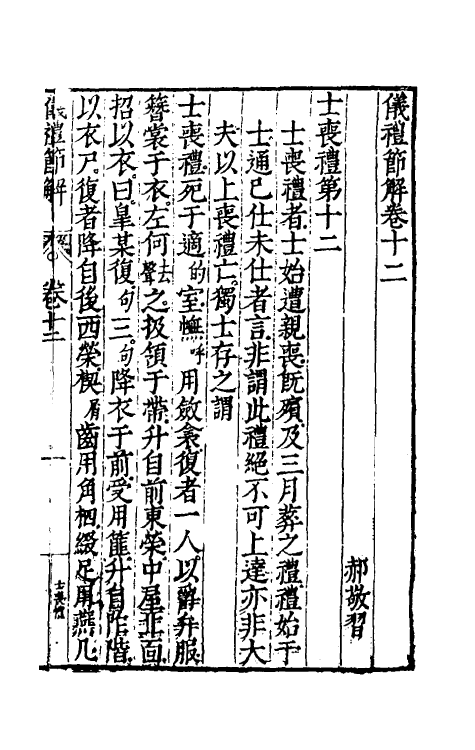 儀禮節解卷十二
郝敬習
士喪禮第十二
士喪禮者士始遭親喪旣殯及三月葬之禮禮始于
士通已仕未仕者言非謂此禮絕不可上達亦非大
夫以上喪禮亡獨士存之謂
士喪禮死于適的室幠呼用斂衾復者一人以爵弁服
簪裳于衣左何去聲之扱領于帶升自前東榮中屋北面
招以衣曰臯某復句三句降衣于前受用篚升自阼階
以衣尸復者降自後西榮楔屑齒用角柶綴足用燕几
儀禮節解
卷十二
士喪禮